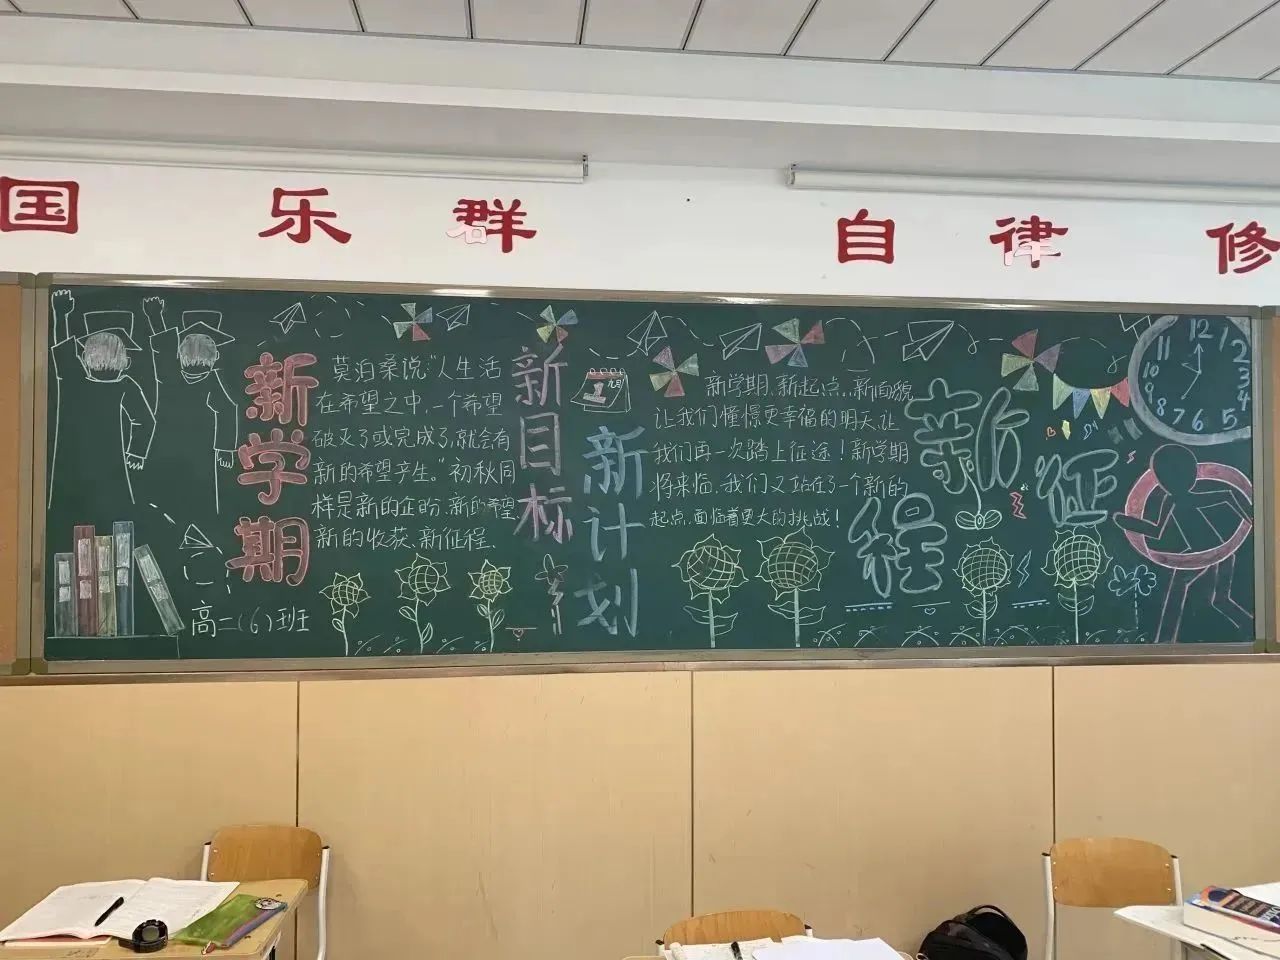 国 乐 群 自 律 修
新学期
莫泊桑说:“人生活
在希望之中,一个希望
破灭了或完成了,就会有
新的希望产生。”初秋同
样是新的企盼、新的希望、
新的收获、新征程、
高二(6)班
新目标
九月
1
新计划
新学期、新起点、新面貌
让我们憧憬更幸福的明天,让
我们再一次踏上征途!新学期
将来临、我们又站在了一个新的
起点,面临着更大的挑战!
新征程
12 1 2 3 4 5 6 7 8 9 10 11